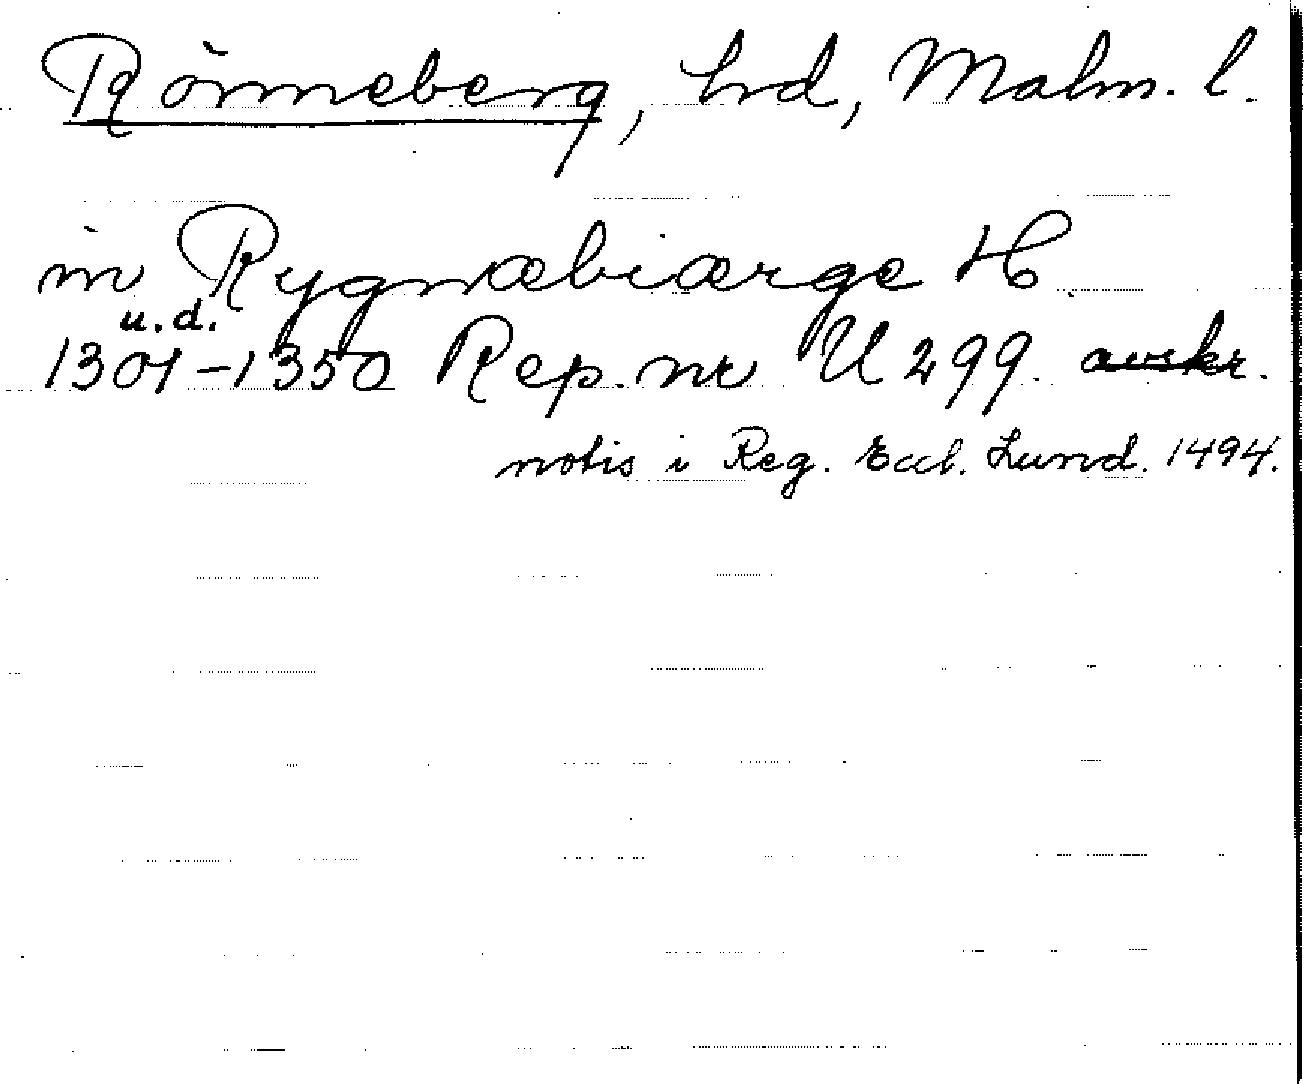 Rönneberg, hd, Malm. l.
in Rygnæbiærge H.
u.d.
1301-1350 Rep. nr U 299. avskr.
notis i Reg. Eccl. Lund. 1494.